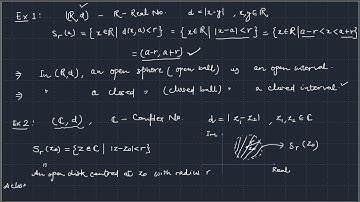 Ex 1: (R, d) - R - Real No. d = |x-y|, x,y∈R
Sr(a) = {x∈R | d(x,a)<r} = {x∈R | |x-a|<r} = {x∈R | a-r<x<a+r}
= (a-r, a+r) ✓
⇒ In (R,d), an open sphere (open ball) is an open interval.
⇒ " a closed " (closed ball) " a closed interval ✓
Ex 2: (C, d), C - Complex No. d = |z1-z2|, z1,z2 ∈ C
Sr(z0) = {z∈C | |z-z0|<r}
Im
Sr(z0)
Real
An open disk centred at z0 with radius r.
A close